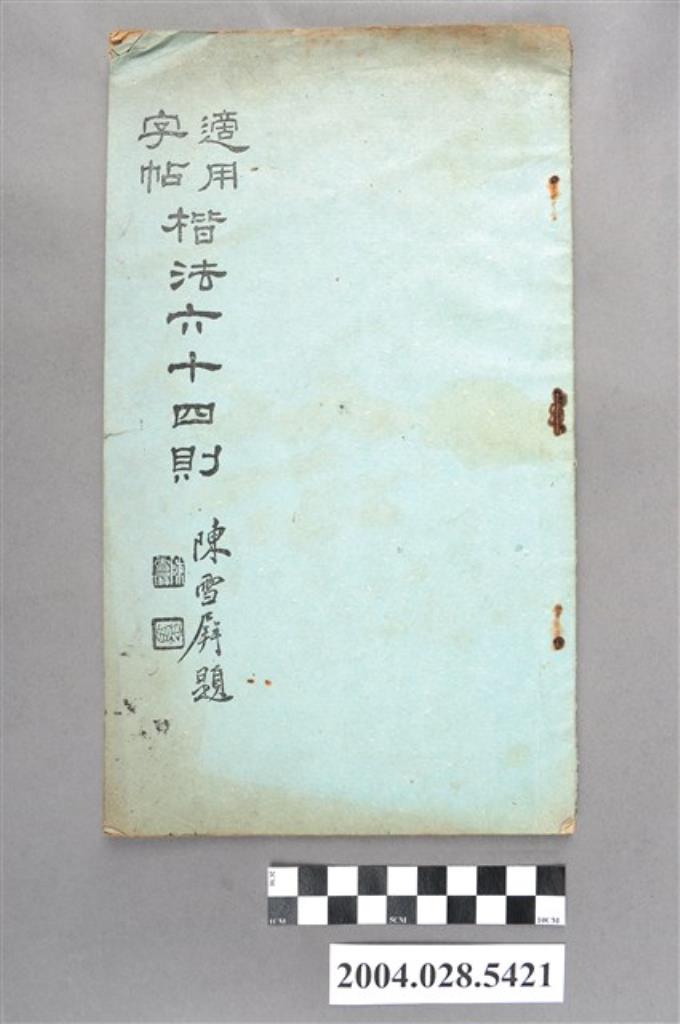 適用
字帖
楷法六十四則
陳雪屏題
1CM
5CM
10CM
2004.028.5421